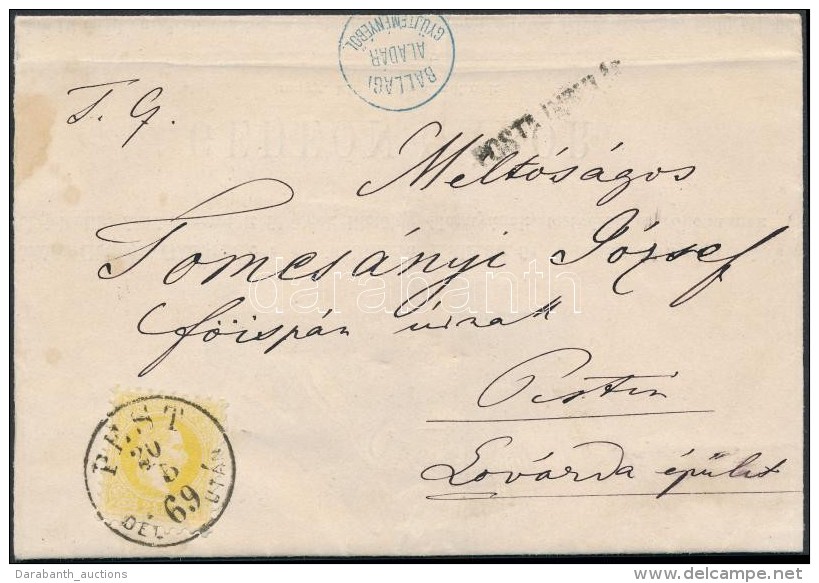 BALLAGI
ALADÁR
GYÜJTEMÉNYÉBŐL
T. Q.
Méltóságos
Tomcsányi József
főispán úrnak
Pestin
Lovárda épület
PEST
20
5
69
DÉL UTÁN
darabanth
Darabanth_auctions
delcampe.net